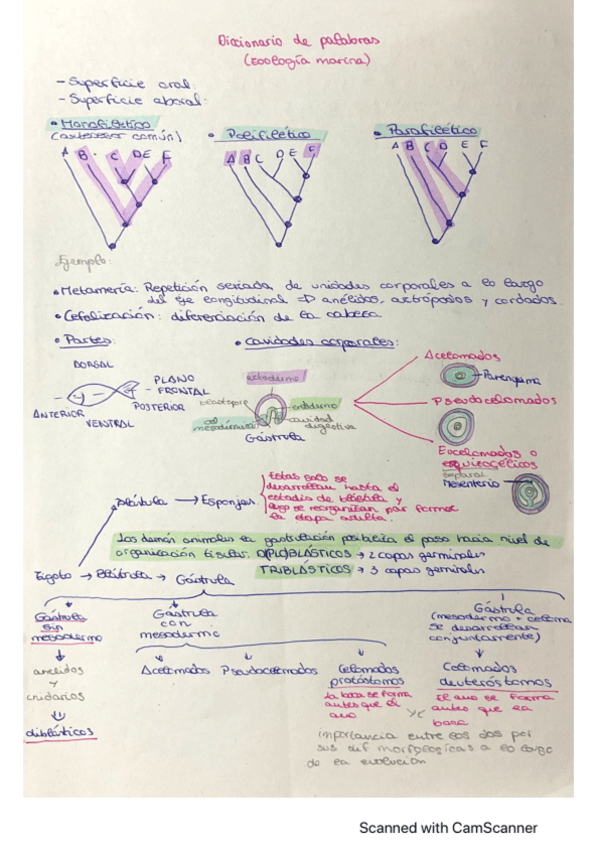 Diccionario de palabras
(Zoología marina)
- Superficie oral:
- Superficie aboral:
• Monofilético
(antecesor común)
A B C D E F
• Polifilético
A B C D E F
• Parafilético
A B C D E F
Ejemplo:
• Metamería: Repetición seriada de unidades corporales a lo largo
del eje longitudinal ⇒ anélidos, artrópodos y cordados.
• Cefalización: diferenciación de la cabeza
• Partes:
DORSAL
PLANO
- FRONTAL
ANTERIOR
POSTERIOR
VENTRAL
• Cavidades corporales:
ectodermo
blastoporo
endodermo
cavidad
digestiva
Gástrula
Acelomados
Parénquima
Pseudocelomados
Eucelomados o
esquizocélicos
separar
Mesenterio
Blástula → Esponjas
Estas solo se
desarrollan hasta el
estadio de blástula y
luego se reorganizan par formar
la etapa adulta.
Los demás animales la gastrulación posibilita el paso hacia nivel de
organización tisular. DI(PLO)BLÁSTICOS → 2 capas germinales
TRIBLÁSTICOS → 3 capas germinales
Zigoto → Blástula → Gástrula
Gástrula
sin
mesodermo
anélidos
y
cnidarios
diblásticos
Gástrula
con
mesodermo
Acelomados Pseudocelomados Celomados
protóstomos
La boca se forma
antes que el
ano
Gástrula
(mesodermo + celoma
se desarrollan
conjuntamente)
Celomados
deuteróstomos
El ano se forma
antes que la
boca
importancia entre los dos por
sus dif morfologicas a lo largo
de la evolución
Scanned with CamScanner